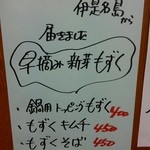 伊是名島
から
届きました
早摘み 新芽もずく
・鍋用トッピングもずく400
・もずくキムチ 450
・もずくそば 450